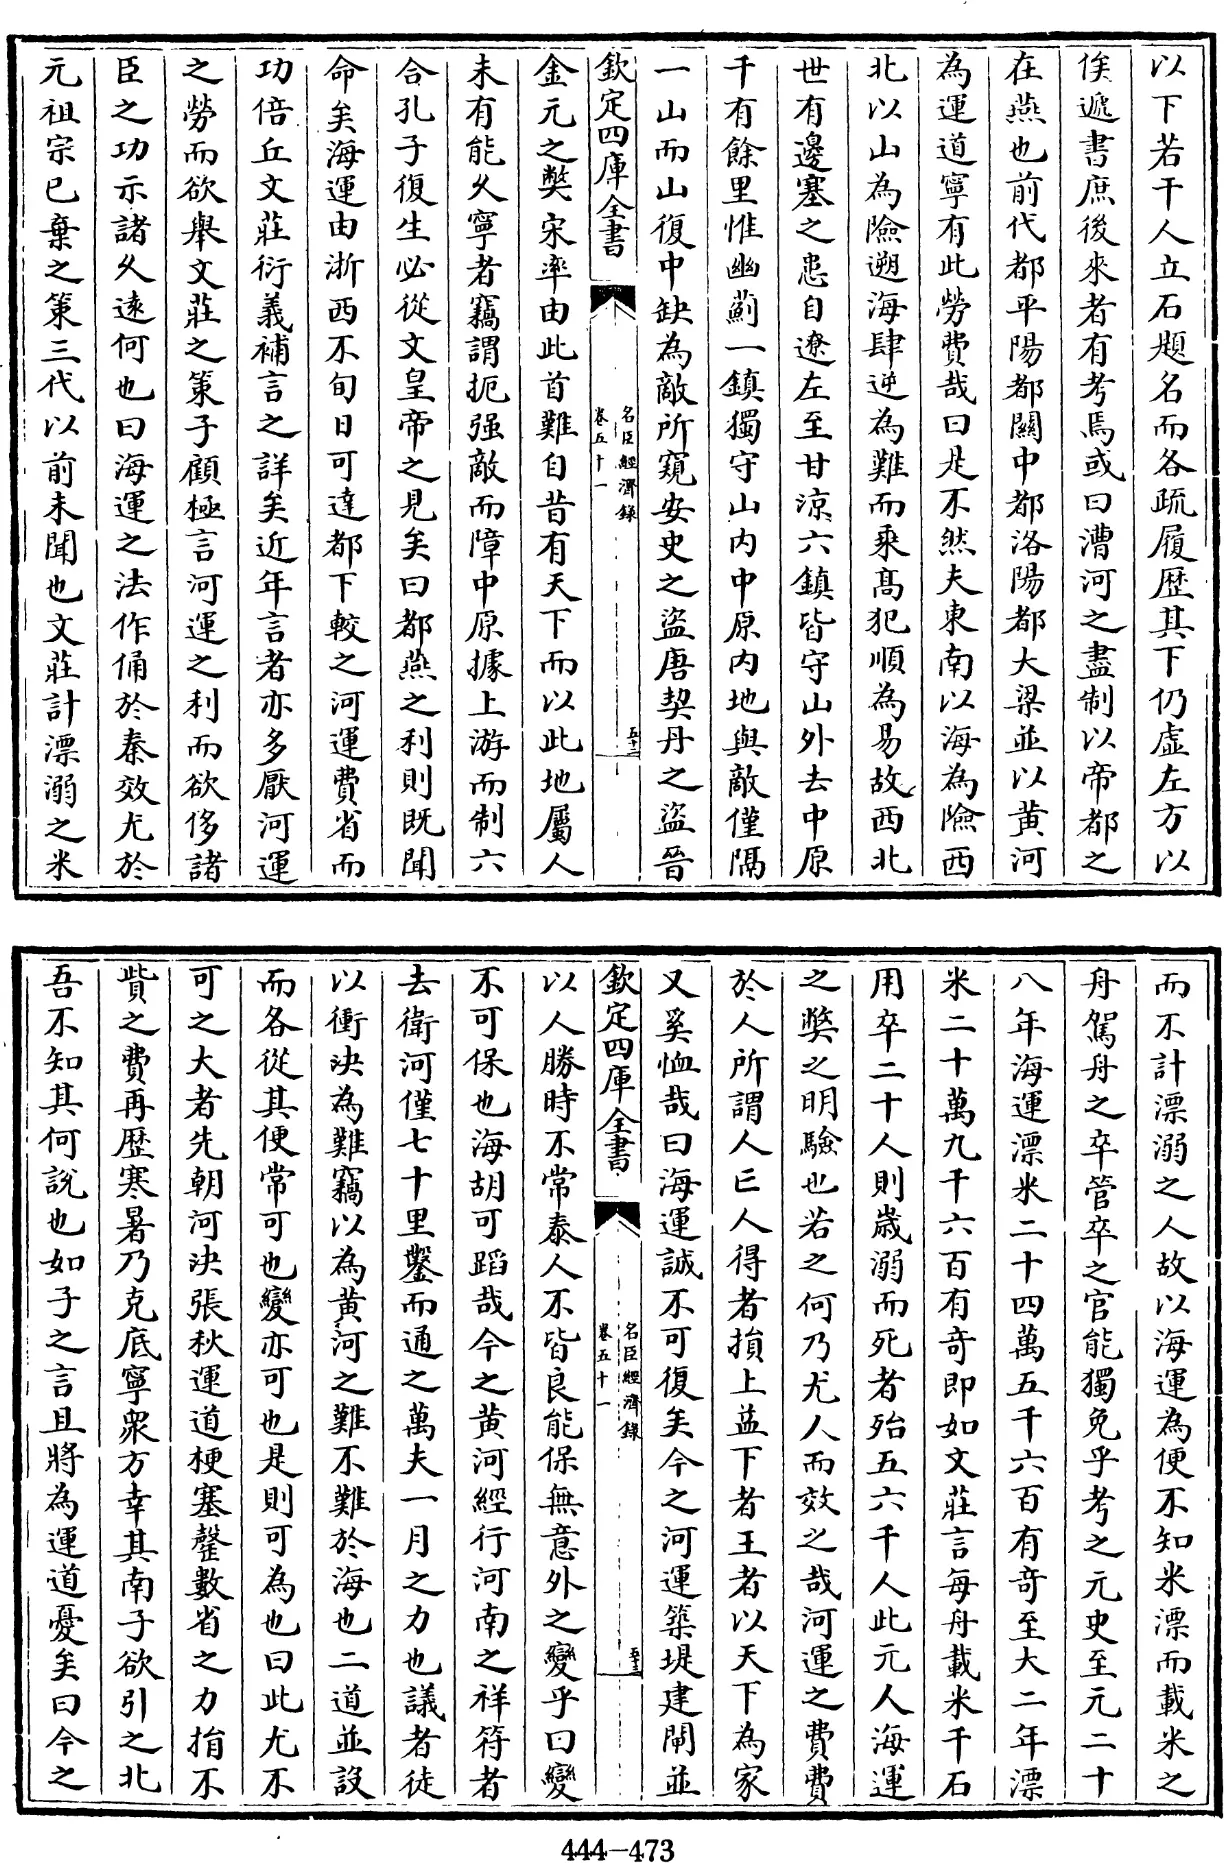 以下若干人立石題名而各疏履歴其下仍虛左方以
俟遞書庶後來者有考焉或曰漕河之盡制以帝都之
在燕也前代都平陽都關中都洛陽都大梁並以黄河
為運道寧有此勞費哉曰是不然夫東南以海為險西
北以山為險遡海肆逆為難而乘髙犯順為易故西北
世有邊塞之患自遼左至甘涼六鎮皆守山外去中原
千有餘里惟幽薊一鎮獨守山内中原内地與敵僅隔
一山而山復中缺為敵所窺安史之盜唐契丹之盜晉
欽定四庫全書
名臣經濟録
卷五十一
五十二
金元之獘宋率由此首難自昔有天下而以此地屬人
未有能久寧者竊謂扼强敵而障中原據上游而制六
合孔子復生必從文皇帝之見矣曰都燕之利則既聞
命矣海運由浙西不旬日可達都下較之河運費省而
功倍丘文莊衍義補言之詳矣近年言者亦多厭河運
之勞而欲舉文莊之策子顧極言河運之利而欲侈諸
臣之功示諸久逺何也曰海運之法作俑於秦效尤於
元祖宗已棄之策三代以前未聞也文莊計漂溺之米
而不計漂溺之人故以海運為便不知米漂而載米之
舟駕舟之卒管卒之官能獨免乎考之元史至元二十
八年海運漂米二十四萬五千六百有竒至大二年漂
米二十萬九千六百有竒即如文莊言每舟載米千石
用卒二十人則嵗溺而死者殆五六千人此元人海運
之獘之明驗也若之何乃尤人而效之哉河運之費費
於人所謂人亡人得者損上益下者王者以天下為家
又奚恤哉曰海運誠不可復矣今之河運築堤建閘並
欽定四庫全書
名臣經濟録
卷五十一
五十三
以人勝時不常泰人不皆良能保無意外之變乎曰變
不可保也海胡可蹈哉今之黄河經行河南之祥符者
去衛河僅七十里鑿而通之萬夫一月之力也議者徒
以衝決為難竊以為黄河之難不難於海也二道並設
而各從其便常可也變亦可也是則可為也曰此尤不
可之大者先朝河決張秋運道梗塞罄數省之力捐不
貲之費再歴寒暑乃克底寧衆方幸其南子欲引之北
吾不知其何説也如子之言且將為運道憂矣曰今之
444-473